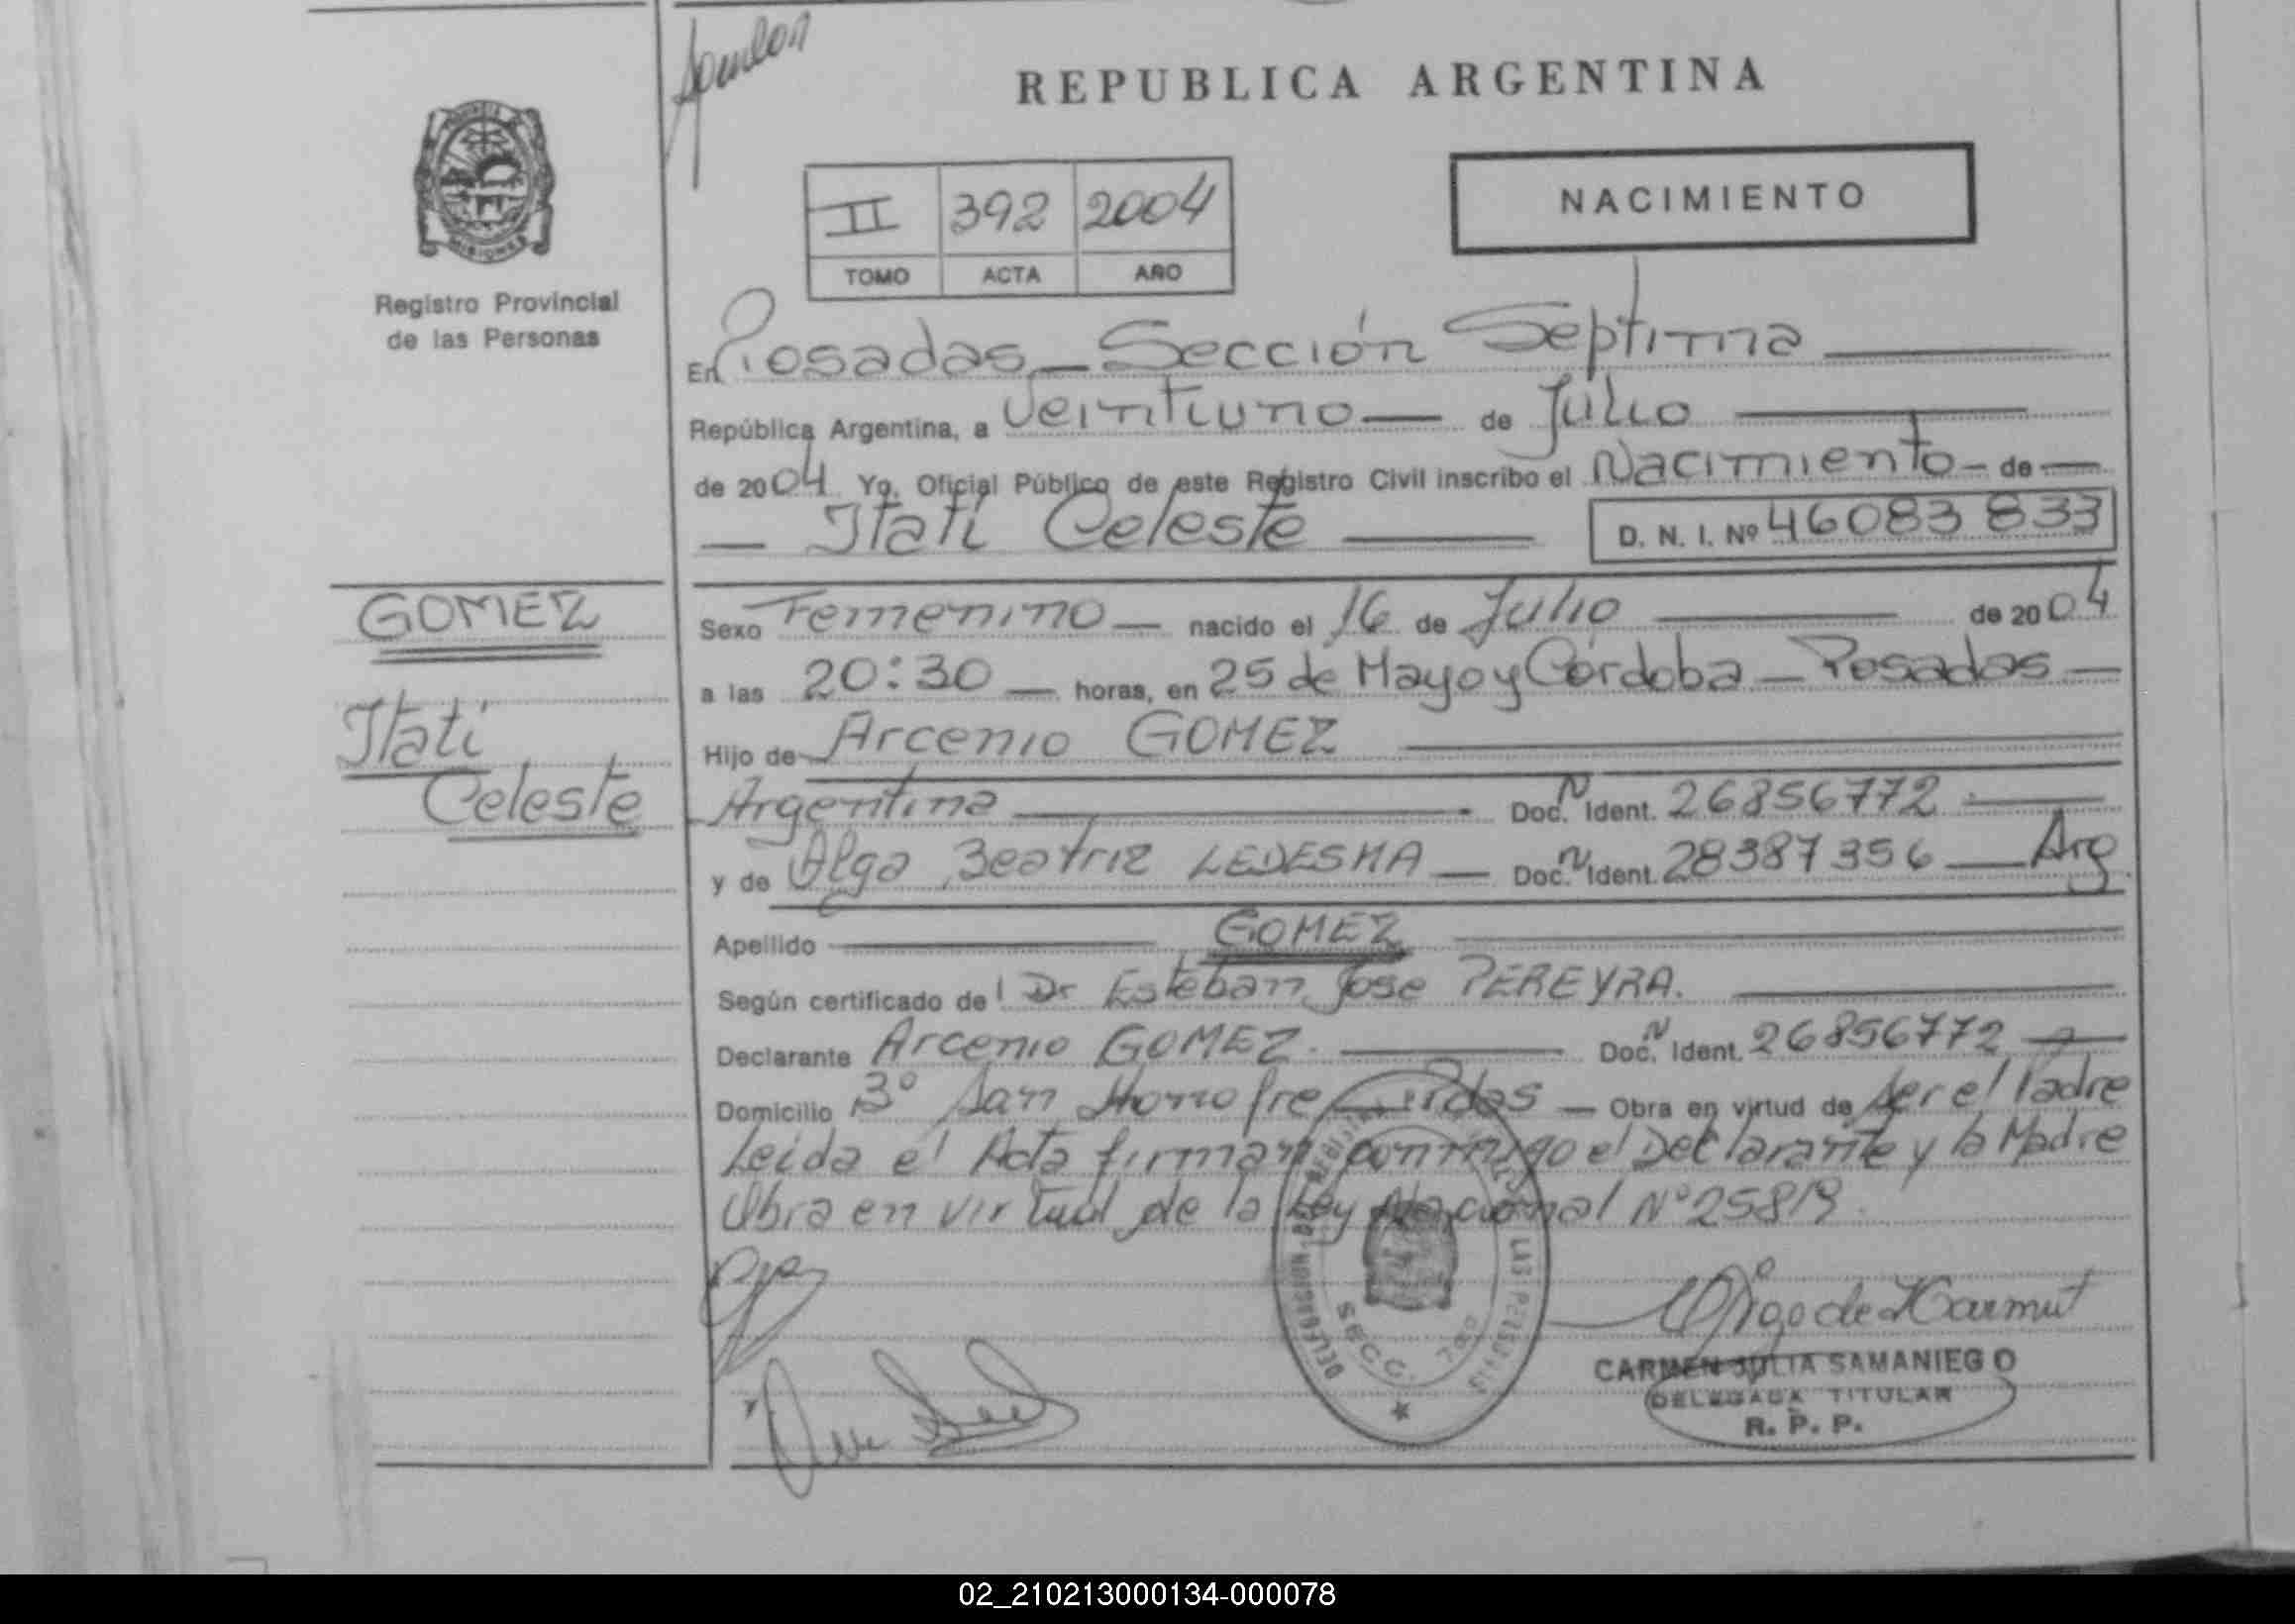 REPUBLICA ARGENTINA
MISIONES
Registro Provincial
de las Personas
II 392 2004
TOMO ACTA AÑO
NACIMIENTO
En Posadas - Sección Septima
República Argentina, a Veintiuno de Julio
de 2004 Yo, Oficial Público de este Registro Civil inscribo el Nacimiento - de
Itati Celeste D. N. I. Nº 46083 833
GOMEZ
Itati
Celeste
Sexo Femenino nacido el 16 de Julio de 2004
a las 20:30 horas, en 25 de Mayo y Córdoba - Posadas
Hijo de Arcenio GOMEZ
Argentina Doc. N Ident. 26856772
y de Olga Beatriz LEDESMA Doc. N Ident. 28387356 Arg
Apellido GOMEZ
Según certificado del Dr Esteban Jose PEREYRA.
Declarante Arcenio GOMEZ. Doc. N Ident. 26856772
Domicilio Bº San Honofre Pdas - Obra en virtud de ser el Padre
Leida el Acta firman conmigo el Declarante y la Madre
Obra en virtud de la Ley Nacional Nº 25819.
DELEGACION DE REGISTRO LAS PERSONAS
SECC. 7
CARMEN JULIA SAMANIEGO
DELEGADA TITULAR
R. P. P.
02_210213000134-000078